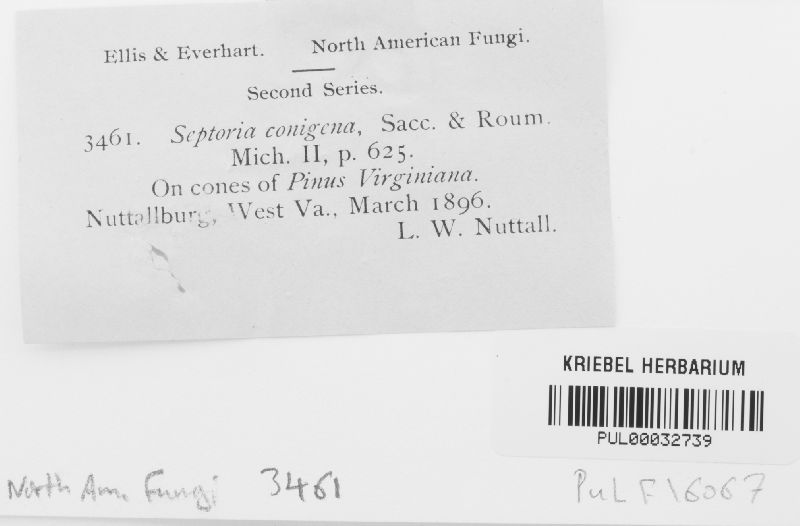 Ellis & Everhart. North American Fungi.
Second Series.
3461. Septoria conigena, Sacc. & Roum.
Mich. II, p. 625.
On cones of Pinus Virginiana.
Nuttallburg, West Va., March 1896.
L. W. Nuttall.
KRIEBEL HERBARIUM
PUL00032739
North Am. Fungi 3461
PUL F16067